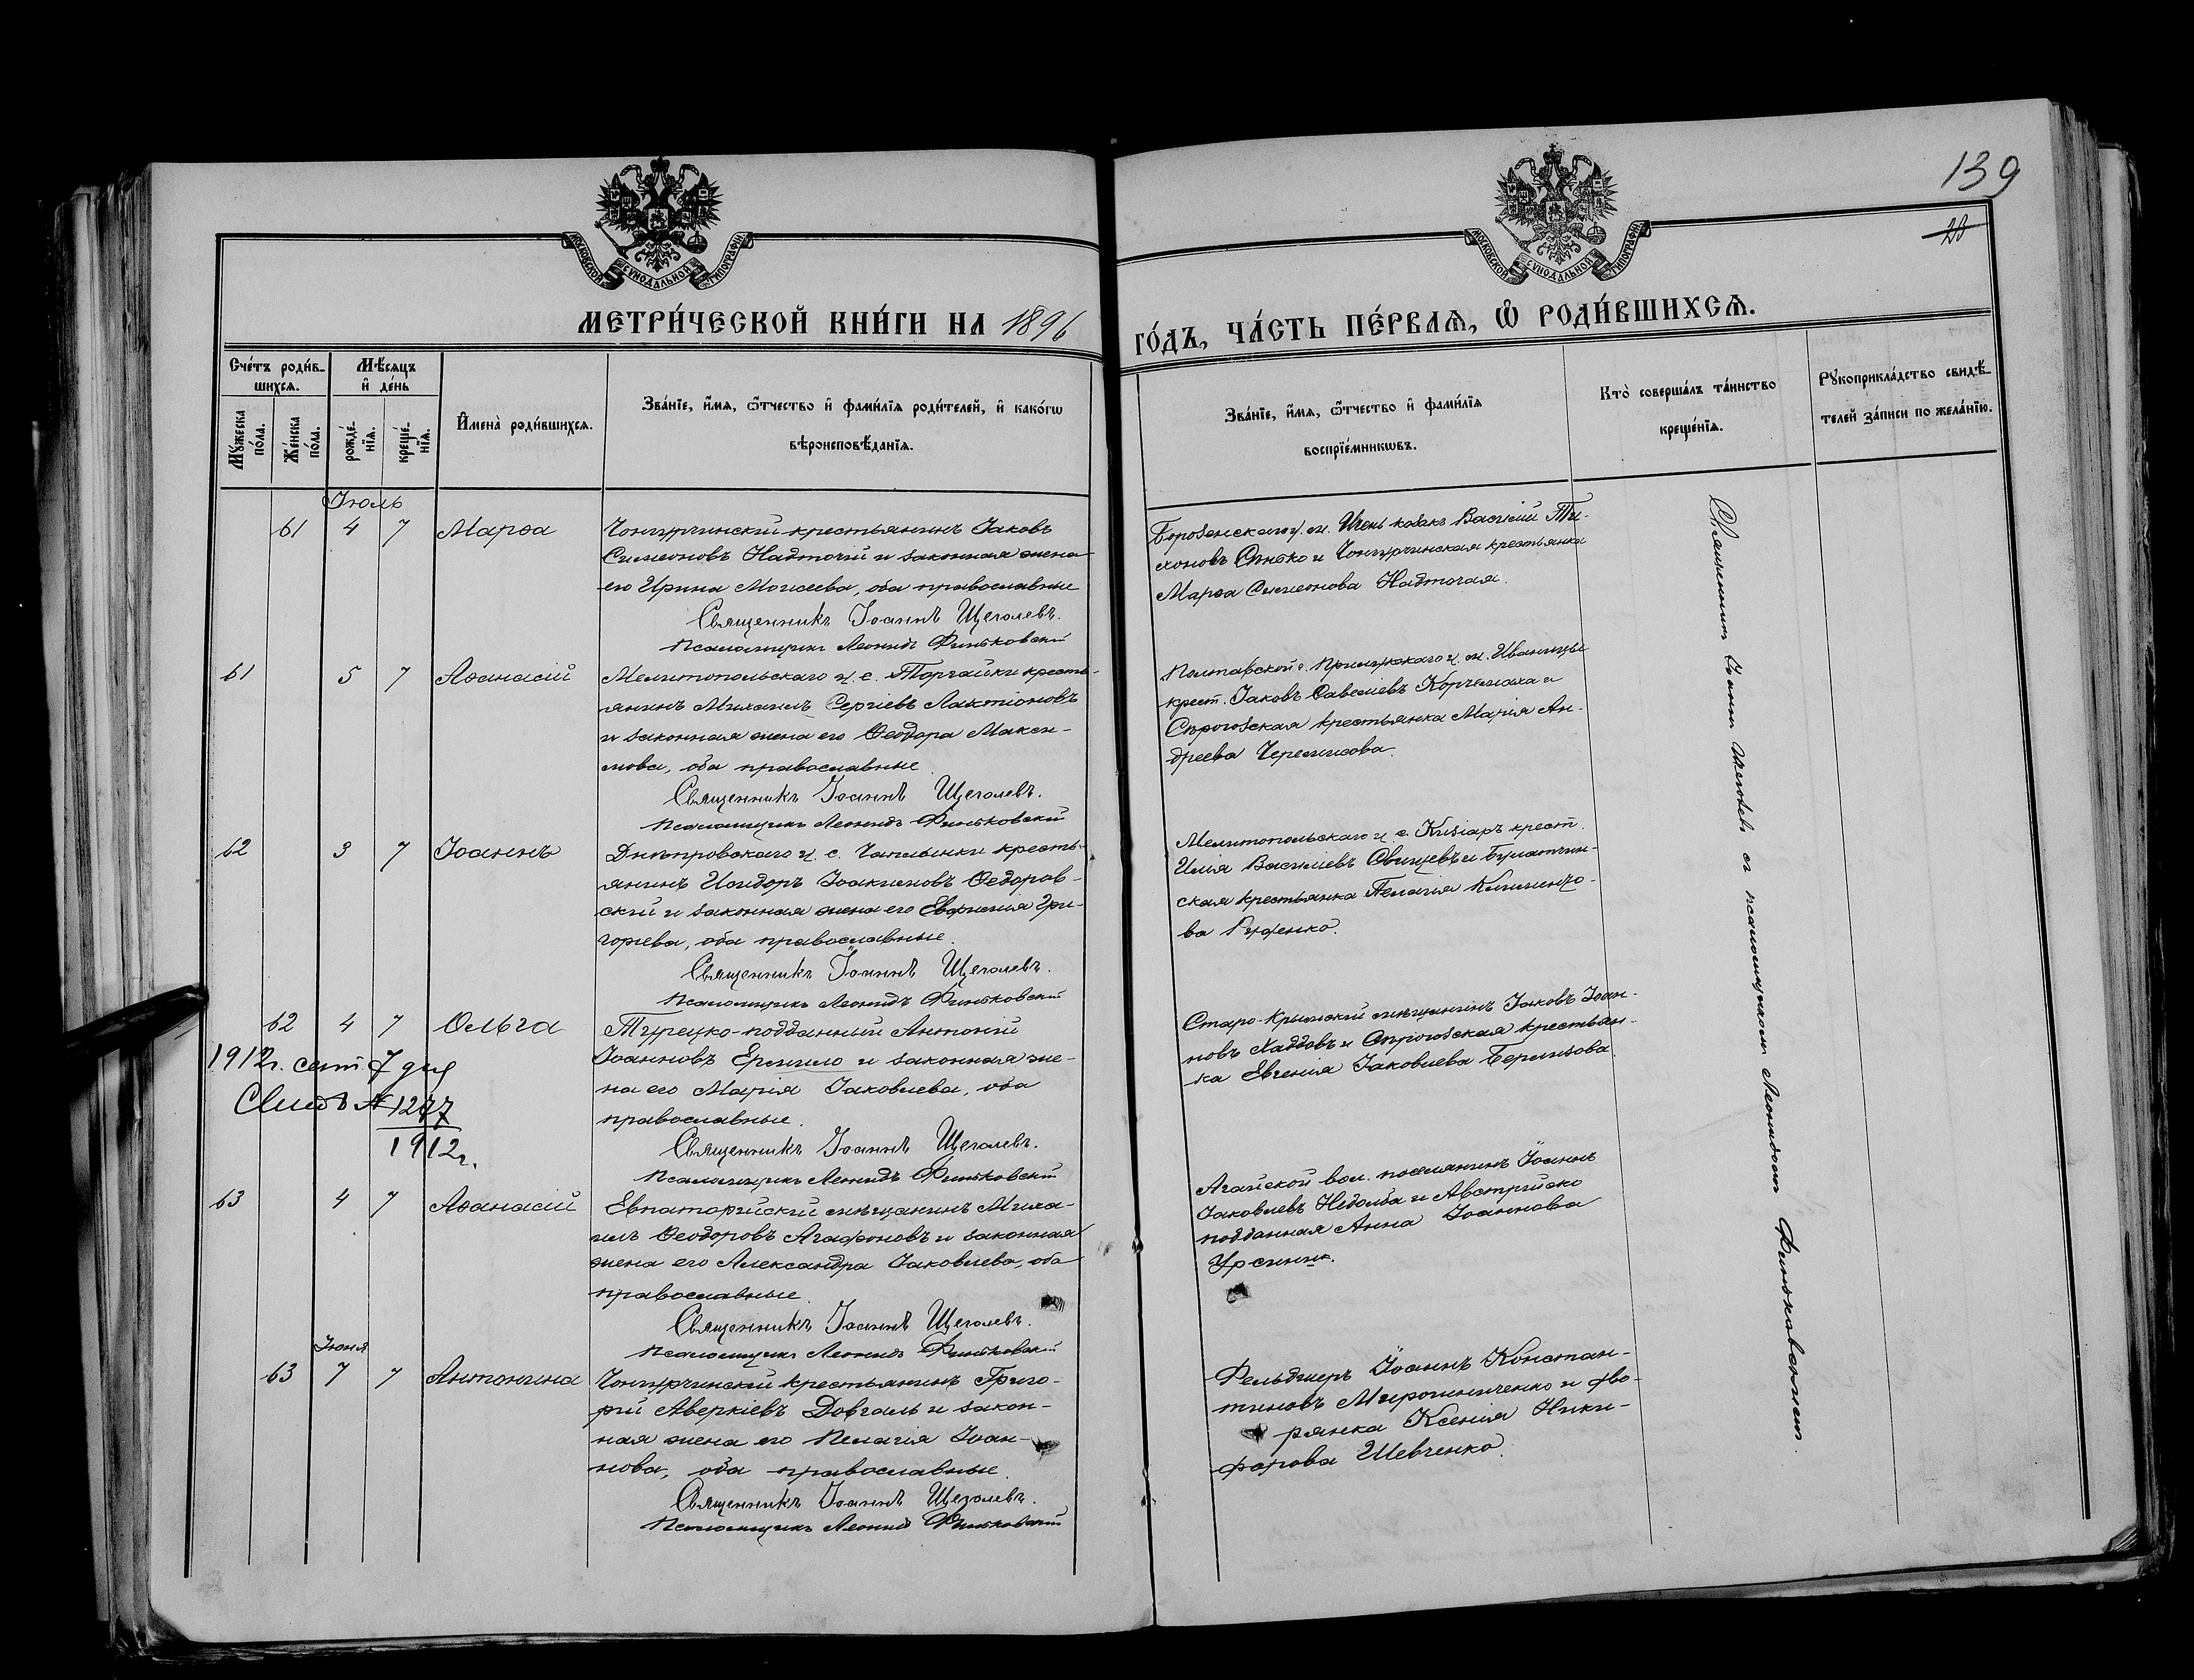 139
23
МОСКОВСКОЙ СУНОДАЛЬНОЙ ТИПОГРАФІИ
МОСКОВСКОЙ СУНОДАЛЬНОЙ ТИПОГРАФІИ
МЕТРИ́ЧЕСКОЙ КНИ́ГИ НА 1896
ГО́ДЪ, ЧА́СТЬ ПЕ́РВАѦ, Ѡ РОДИ́ВШИХСѦ.
Сче́тъ роди́в-
шихсѧ.
Мѣ́сѧцъ
и҆ де́нь
Мꙋ́жеска
по́ла.
Же́нска
по́ла.
рожде́-
нїѧ.
креще́-
нїѧ.
И҆мена̀ роди́вшихсѧ.
Зва́нїе, и҆́мѧ, ѻ҆́тчество и҆ фами́лїѧ роди́телей, и҆ како́гѡ
вѣроисповѣ́данїѧ.
Зва́нїе, и҆́мѧ, ѻ҆́тчество и҆ фами́лїѧ
воспрїе́мникѡвъ.
Кто̀ соверша́лъ та́инство
креще́нїѧ.
Рꙋкоприкла́дство свидѣ́-
телей за́писи по жела́нїю.
Іюль
61 4 7 Марѳа
Чонгурчинскій крестьянинъ Іаковъ
Симеоновъ Надточій и законная жена
его Ирина Моисеева, оба православные
Священникъ Іоаннъ Щеголевъ.
Псаломщикъ Леонидъ Финьковскій
Борзенскаго у. м. Ичень козакъ Василій Ти-
хоновъ и Чонгурчинская крестьянка
Марѳа Симеонова Надточая.
61 5 7 Аѳанасій
Мелитопольскаго у. с. Торгайки кресть-
янинъ Михаилъ Сергіевъ Лактіоновъ
и законная жена его Ѳеодора Макси-
мова, оба православные.
Священникъ Іоаннъ Щеголевъ.
Псаломщикъ Леонидъ Финьковскій
Полтавской г. Прилукскаго у. м. Иваницы
крест. Іаковъ Савеліевъ Корчемаха и
Сѣрогозская крестьянка Марія Ан-
дреева Черемисова.
62 3 7 Іоаннъ
Днѣпровскаго у. с. Чаплынки кресть-
янинъ Исидоръ Іоакимовъ Ѳедоров-
скій и законная жена его Евфимія Гри-
горіева, оба православные.
Священникъ Іоаннъ Щеголевъ.
Псаломщикъ Леонидъ Финьковскій
Мелитопольскаго у с. Кизіаръ крест.
Илія Василіевъ Свищевъ и Булатчин-
ская крестьянка Пелагія Клименто-
ва Руденко.
62 4 7 Ольга
Турецко-подданный Антоній
Іоанновъ Ермило и законная же-
на его Марія Іаковлева, оба
православные.
Священникъ Іоаннъ Щеголевъ.
Псаломщикъ Леонидъ Финьковскій
Старо-Крымскій мѣщанинъ Іаковъ Іоан-
новъ Хаддовъ и Сѣрогозская крестьян-
ка Евгенія Іаковлева Берлизова.
1912г. сент. 7 дня
№ 1277
1912г.
63 4 7 Аѳанасій
Евпаторійскій мѣщанинъ Миха-
илъ Ѳеодоровъ Агафоновъ и законная
жена его Александра Іаковлева, оба
православные.
Священникъ Іоаннъ Щеголевъ.
Псаломщикъ Леонидъ Финьковскій
Агайской вол. поселянинъ Іоаннъ
Іаковлевъ Недолба и Австрійско
подданная Анна Іоаннова
Іюня
63 7 7 Антонина
Чонгурчинскій крестьянинъ Григо-
рій Аверкіевъ Довгаль и закон-
ная жена его Пелагія Іоан-
нова, оба православные.
Священникъ Іоаннъ Щеголевъ.
Псаломщикъ Леонидъ Финьковскій
Фельдшеръ Іоаннъ Констан-
тиновъ Мирошниченко и дво-
рянка Ксенія Ники-
форова Шевченко.
Священникъ Іоаннъ Щеголевъ съ псаломщикомъ Леонидомъ Финьковскимъ.